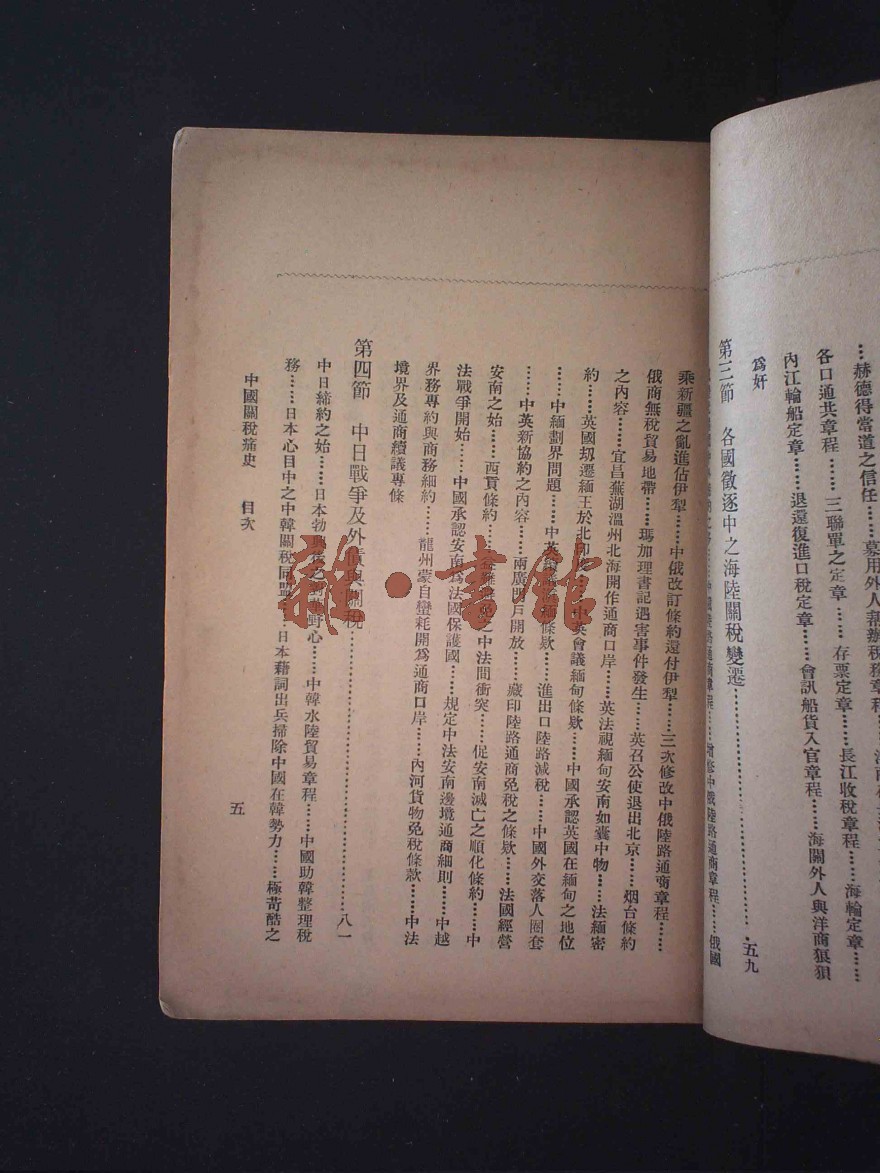 …赫德得當道之信任……募用外人幫辦稅務章程……
各口通共章程……三聯單之定章……存票定章……長江收稅章程……海輪定章……
內江輪船定章……退還復進口稅定章……會訊船貨入官章程……海關外人與洋商狼狽
爲奸
第三節　各國徵逐中之海陸關稅變遷……五九
陸路通商章程……增修中俄陸路通商章程……俄國
乘新疆之亂進佔伊犁……中俄改訂條約還付伊犁……三次修改中俄陸路通商章程……
俄商無稅貿易地帶……瑪加理書記遇害事件發生……英召公使退出北京……烟台條約
之內容……宜昌蕪湖溫州北海開作通商口岸……英法視緬甸安南如囊中物……法緬密
約……英國刼遷緬王於北印度……中英會議緬甸條欵……中國承認英國在緬甸之地位
……中緬劃界問題……中英條欵……進出口陸路減稅……中國外交落人圈套
……中英新協約之內容……兩廣門戶開放……藏印陸路通商免稅之條欵……法國經營
安南之始……西貢條約……之中法間衝突……促安南滅亡之順化條約……中
法戰爭開始……中國承認安南爲法國保護國……規定中法安南邊境通商細則……中越
界務專約與商務細約……龍州蒙自蠻耗開爲通商口岸……內河貨物免稅條款……中法
境界及通商續議專條
第四節　中日戰爭及外債與關稅……八一
中日締約之始……日本勃興後之野心……中韓水陸貿易章程……中國助韓整理稅
務……日本心目中之中韓關稅同盟……日本藉詞出兵掃除中國在韓勢力……極苛酷之
中國關稅痛史　目次
五
雜·書館